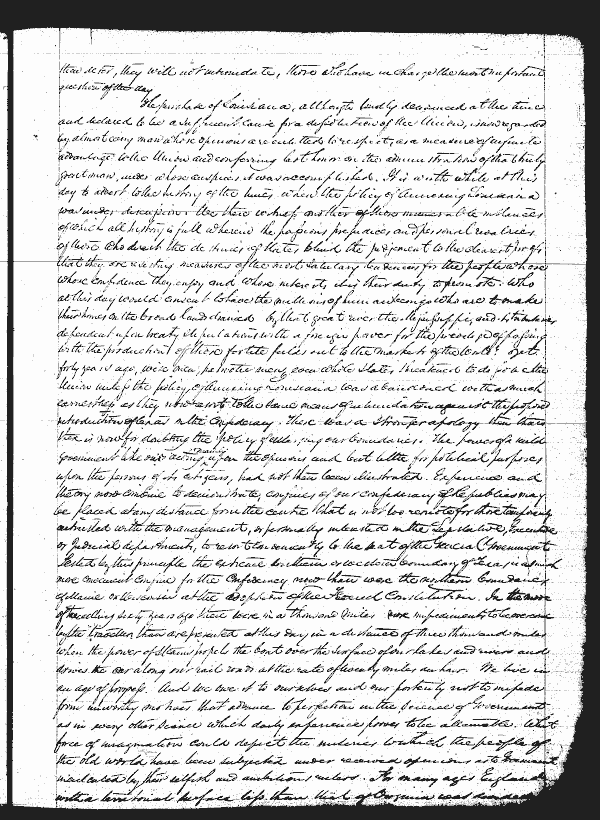 they will not intimidate, those who have in charge the most important
question of the day
The purchase of Louisiana, although loudly denounced at the time
and declared to be a sufficient cause for a dissolution of the Union, is now regarded
by almost every man whose opinions are entitled to respect, as a measure of infinite
advantage to the Union and conferring last honor on the administration of that
great man, under whose auspices it was accomplished. It is worth while at this
day to advert to the history of the times, when the policy of annexing Louisiana
was under discussion. We there behold another of those innumerable instances
of which all history is full wherein the passions prejudices and personal
of those who direct the destinies of States blind the judgement to the clearest proofs
that they are resisting measures of the most salutary tendencies for the people whose
whose confidence they enjoy and whose interests, it is their duty to promote. Who
at this day would consent to have the millions of human beings who are to make
their homes on the broad lands drained by that great river the Mississippi, and its tributaries
dependent upon treaty stipulations with a foreign power for the privilege of passing
with the productions of those fertile fields out to the markets of the World? Yet
forty years ago, wise men, patriotic men, even whole States, threatened to dissolve the
Union unless the policy of annexing Louisiana was abandoned with as much
earnestness as they now resort to the same means of intimidation against the proposed
introduction of Texas in the Confederacy. There was a stronger apology then than
there is now for doubting the policy of enlarging our boundaries. The power of a mild
Government like ours acting mainly upon the opinions and but little for political purposes
upon the persons of its citizens, had not then been illustrated. Experience and
theory now combine to demonstrate, empires of our confederacy of republics may
be placed at any distance from the centre that is not too remote for those
entrusted with the management, or personally interested in the Legislative, Executive
or Judicial departments, to resort conveniently to the seat of the General Government
Tested by this principle the extreme southern or western boundary of Texas is a much
more convenient for the Confederacy now than were the northern boundaries
of Maine or Wisconsin at the adoption of the Federal Constitution. In the
of travelling sixty years ago there were in a thousand miles more impediments to be overcome
by the traveller than are presented at this day in a distance of three thousand miles
when the power of Steam propels the boat over the surface of our lakes and rivers and
drives the car along our rail roads at the rate of twenty miles an hour. We live in
an age of progress. And we owe it to ourselves and our posterity not to impede
from unworthy motives that advance to perfection in the Science of Government
as in every other science which daily experience proves to be attainable. What
force of imagination could depict the miseries to which the people of
the old world have been subjected under received opinions as to Government
inculcated by their selfish and ambitious rulers. For many ages England
with a territorial surface less than that of Virginia was divided